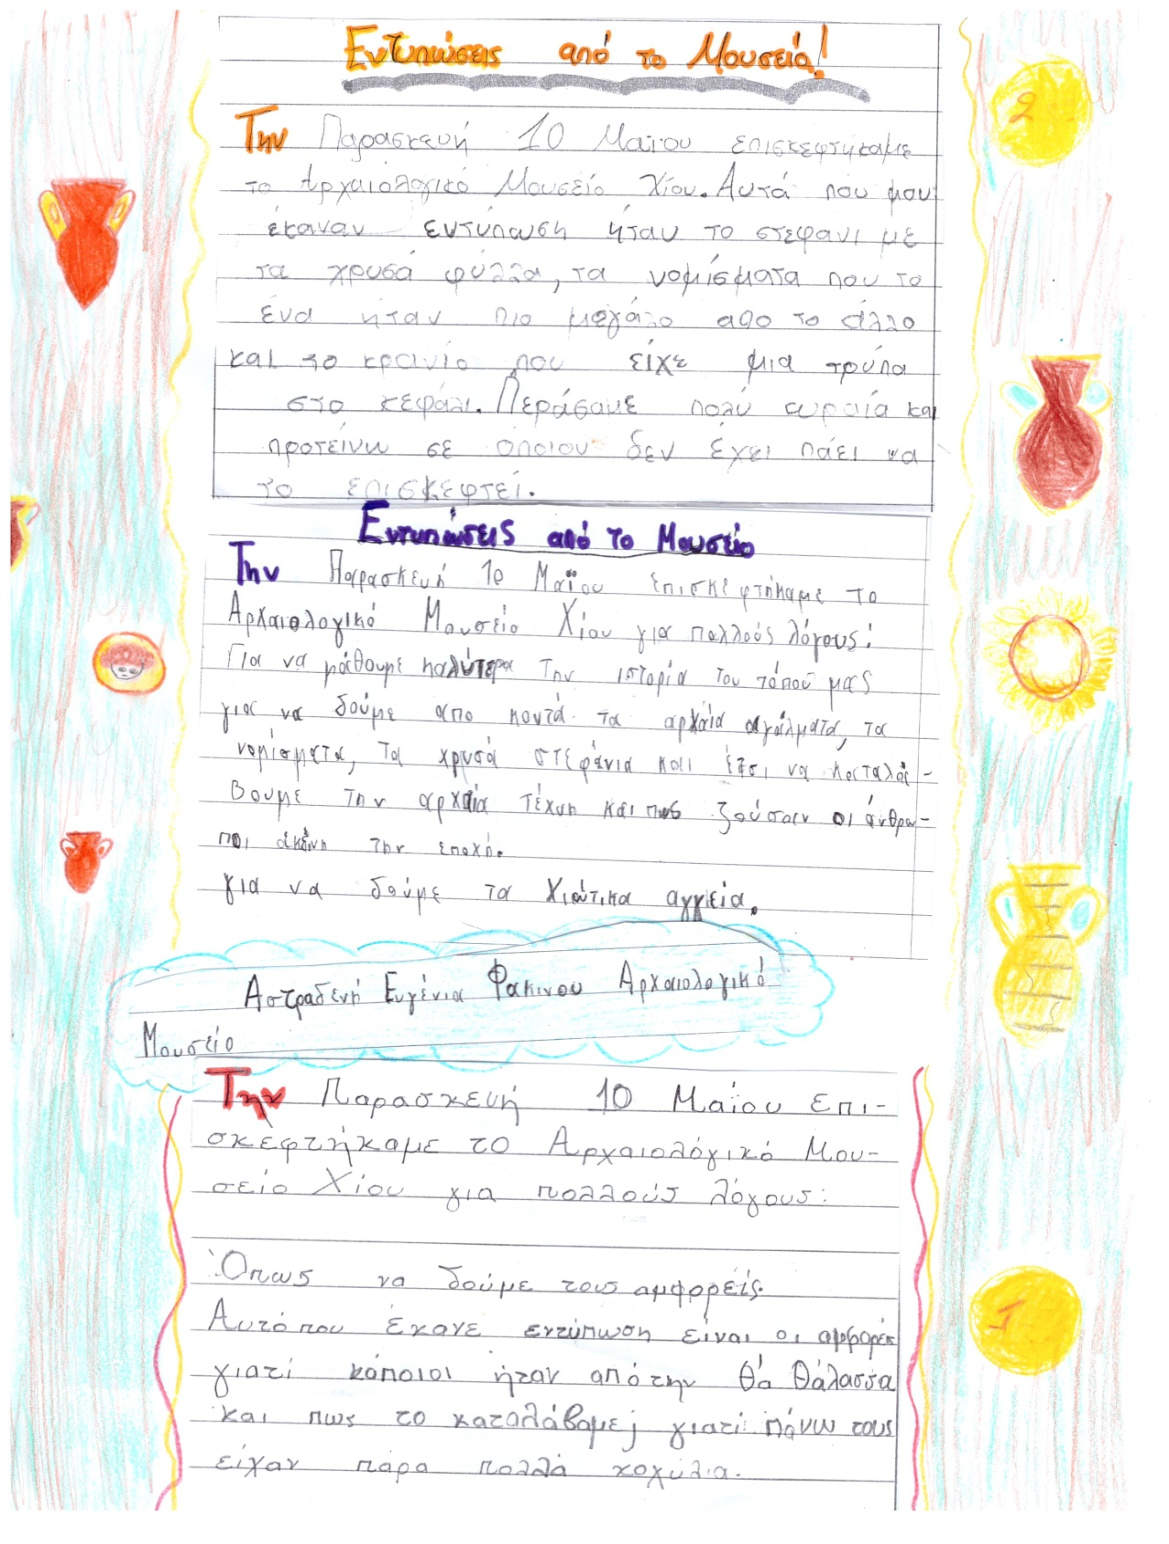 Εντυπώσεις από το Μουσείο!
Την Παρασκευή 10 Μαΐου επισκεφτήκαμε
το Αρχαιολογικό Μουσείο Χίου. Αυτά που μου
έκαναν εντύπωση ήταν το στεφανι με
τα χρυσά φύλλα, τα νομίσματα που το
ένα ήταν πιο μεγάλο απο το άλλο
και το κρανίο που είχε μια τρύπα
στο κεφάλι. Περάσαμε πολύ ωραία και
προτείνω σε όποιον δεν έχει πάει να
το επισκεφτεί.
Εντυπώσεις από το Μουσείο
Την Παρασκευή 10 Μαΐου επισκεφτήκαμε το
Αρχαιολογικό Μουσείο Χίου για πολλούς λόγους:
Για να μάθουμε καλύτερα την ιστορία του τόπου μας
για να δούμε απο κοντά τα αρχαία αγάλματα, τα
νομίσματα, τα χρυσά στεφάνια και έτσι να καταλά-
βουμε την αρχαία τέχνη και πως ζούσαν οι άνθρω-
ποι εκείνη την εποχή.
για να δούμε τα Χιώτικα αγγεία.
Αστραδενή Ευγένια Φακινου Αρχαιολογικό
Μουσείο
Την Παρασκευή 10 Μαΐου επι-
σκεφτήκαμε το Αρχαιολόγικό Μου-
σείο Χίου για πολλούς λόγους:
Όπως να δούμε τους αμφορείς.
Αυτό που έκανε εντύπωση είναι οι αμφορείς
γιατί κάποιοι ήταν από την θά θάλασσα
και πως το καταλάβαμε; γιατί πάνω τους
είχαν πάρα πολλά κοχύλια.
2
1